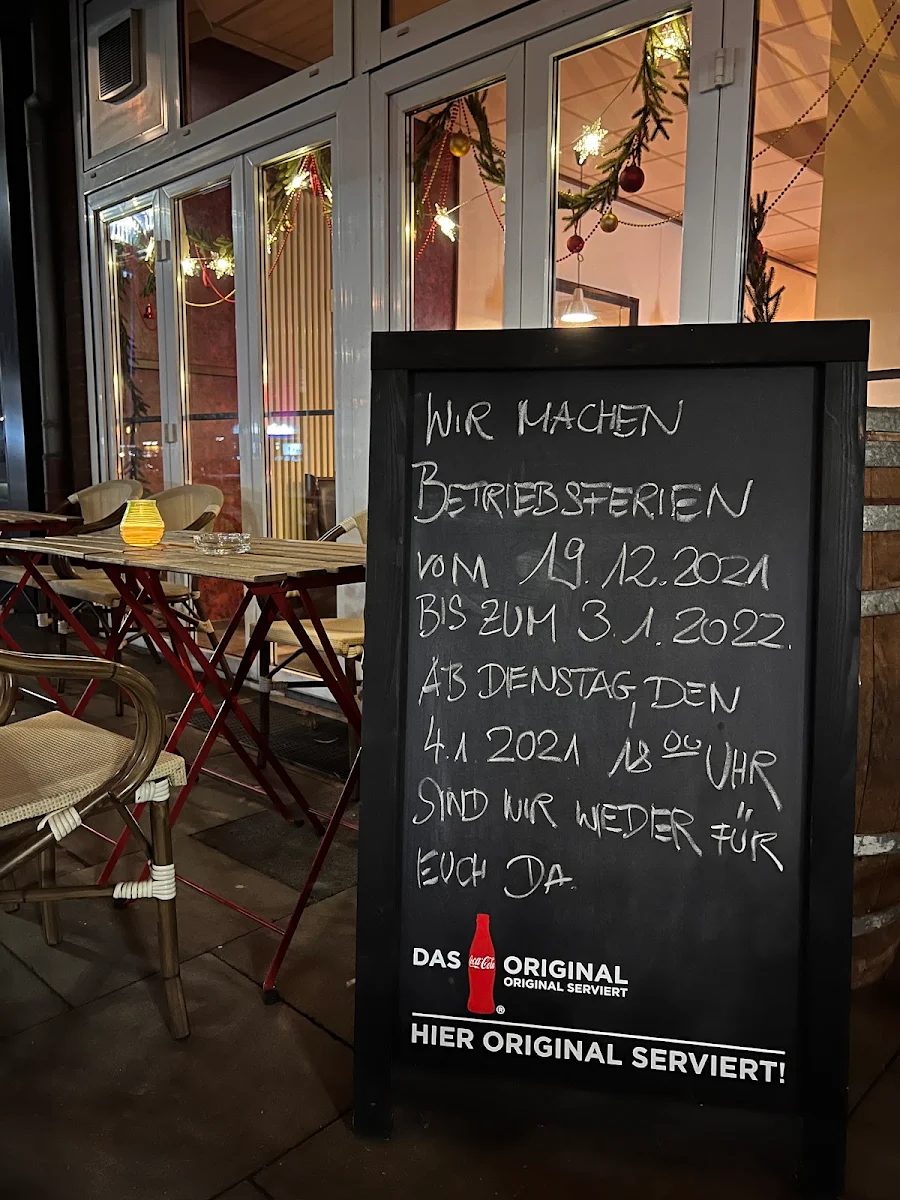 WIR MACHEN
BETRIEBSFERIEN
VOM 19.12.2021
BIS ZUM 3.1.2022.
AB DIENSTAG, DEN
4.1.2021 18⁰⁰ UHR
SIND WIR WIEDER FÜR
EUCH DA.
DAS Coca-Cola ® ORIGINAL
ORIGINAL SERVIERT
HIER ORIGINAL SERVIERT!